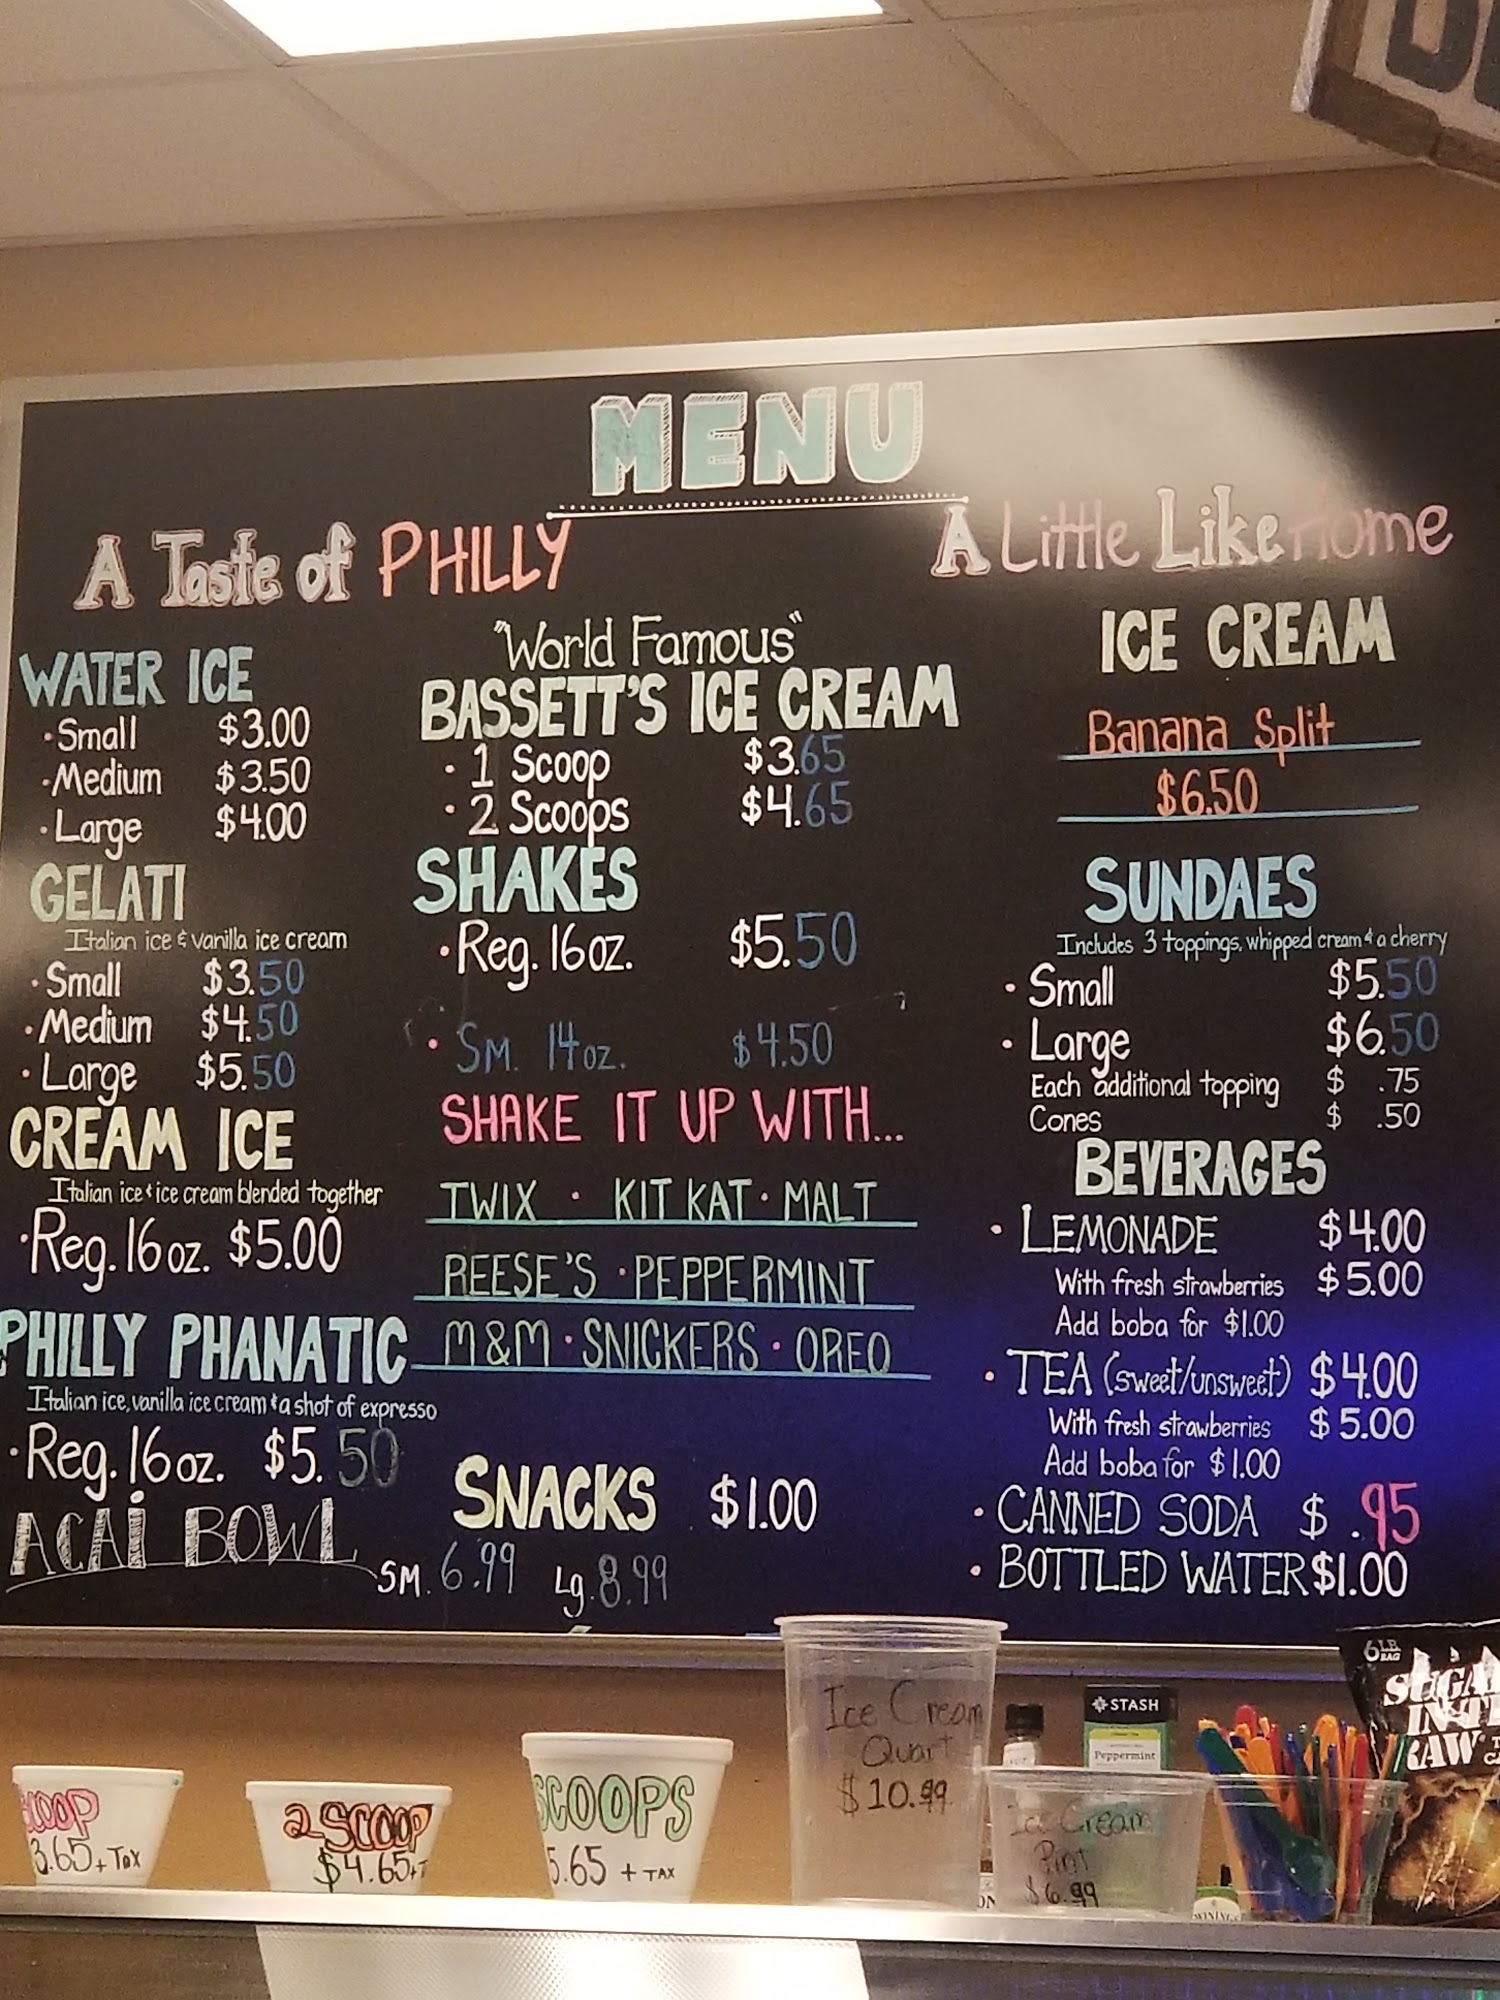 MENU
A Taste of PHILLY
A Little Like Home
WATER ICE
· Small $3.00
· Medium $3.50
· Large $4.00
GELATI
Italian ice & vanilla ice cream
· Small $3.50
· Medium $4.50
· Large $5.50
CREAM ICE
Italian ice & ice cream blended together
· Reg. 16 oz. $5.00
PHILLY PHANATIC
Italian ice, vanilla ice cream & a shot of expresso
· Reg. 16 oz. $5.50
ACAI BOWL SM. 6.99 Lg. 8.99
"World Famous"
BASSETT'S ICE CREAM
· 1 Scoop $3.65
· 2 Scoops $4.65
SHAKES
· Reg. 16 oz. $5.50
· SM. 14 oz. $4.50
SHAKE IT UP WITH...
TWIX · KIT KAT · MALT
REESE'S · PEPPERMINT
M&M · SNICKERS · OREO
SNACKS $1.00
ICE CREAM
Banana Split
$6.50
SUNDAES
Includes 3 toppings, whipped cream & a cherry
· Small $5.50
· Large $6.50
Each additional topping $ .75
Cones $ .50
BEVERAGES
· LEMONADE $4.00
With fresh strawberries $5.00
Add boba for $1.00
· TEA (sweet/unsweet) $4.00
With fresh strawberries $5.00
Add boba for $1.00
· CANNED SODA $ .95
· BOTTLED WATER $1.00
SCOOP
3.65 + Tax
2 SCOOP
$4.65 + T
SCOOPS
5.65 + TAX
Ice Cream
Quart
$10.99
Ice Cream
Pint
$6.99
STASH
Peppermint
6 LB. BAG
SUGA
IN T
RAW